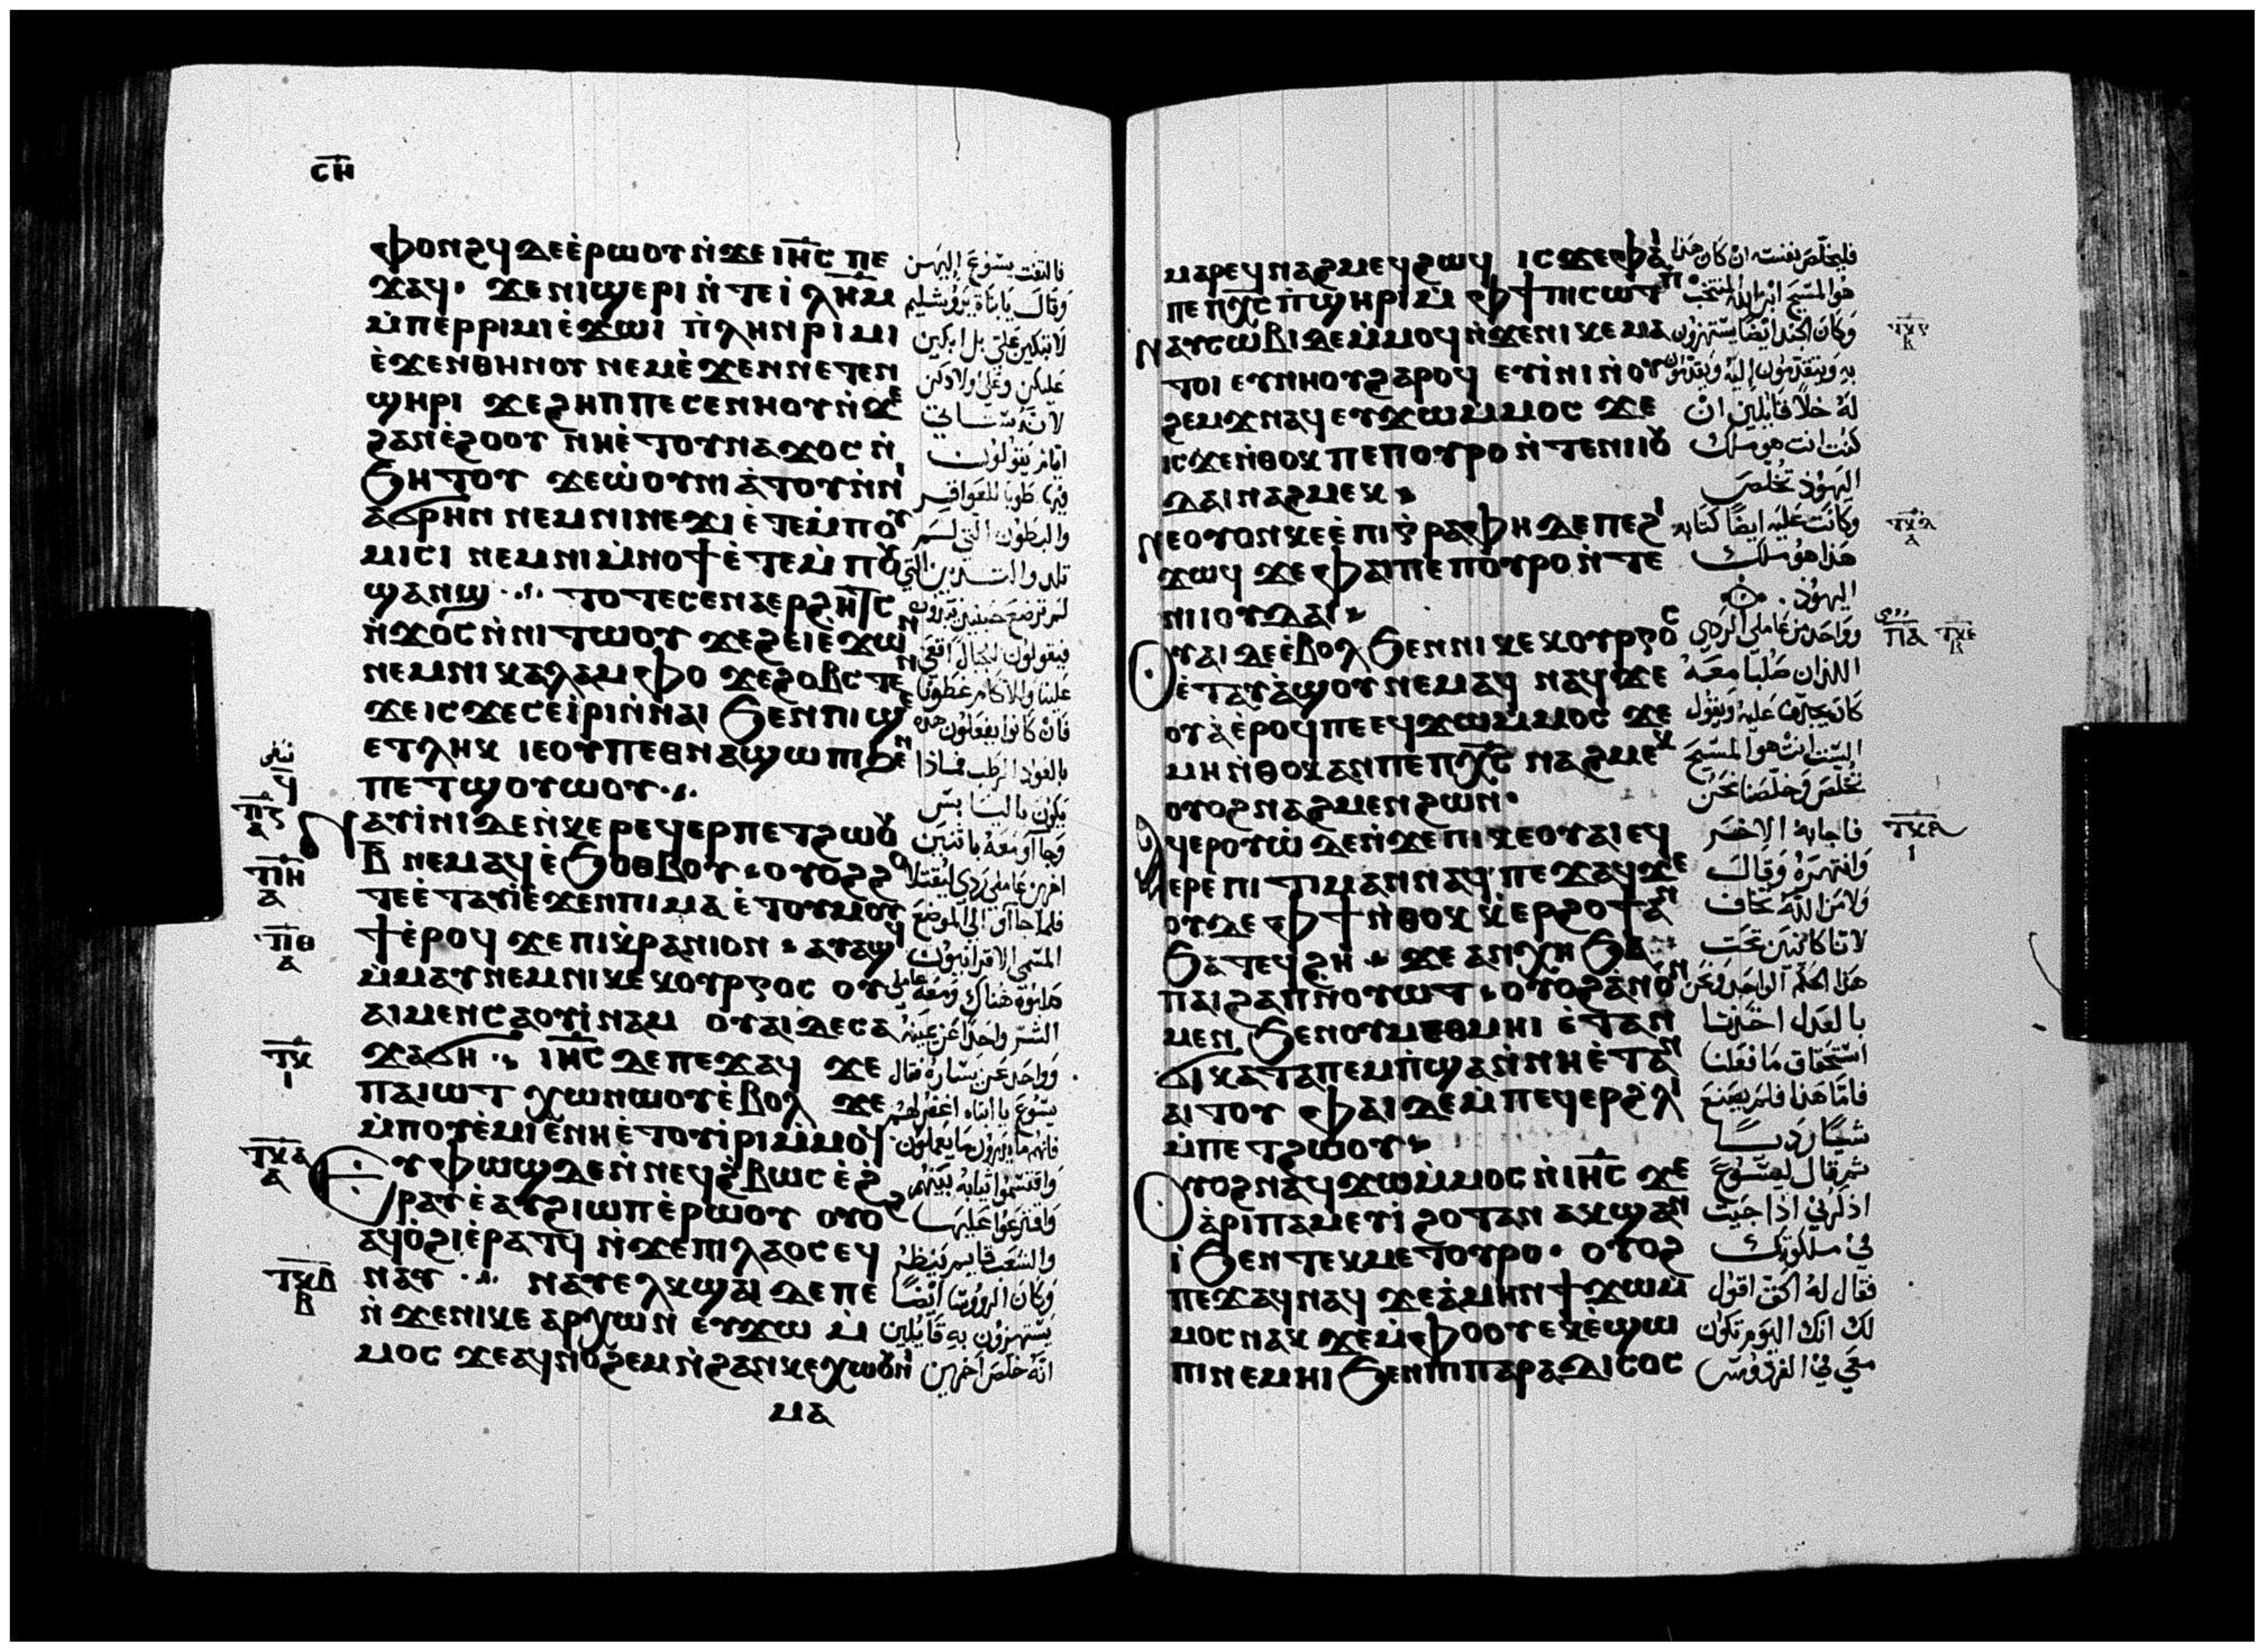 ⲥⲏ
ⲫⲟⲛϩϥ ⲇⲉ ⲉ̀ⲣⲱⲟⲩ ⲛ̀ϫⲉ ⲓⲏⲥ ⲡⲉ
ϫⲁϥ· ϫⲉ ⲛⲓϣⲉⲣⲓ ⲛ̀ⲧⲉ ⲓ̀ⲗⲏⲙ
ⲙ̀ⲡⲉⲣⲣⲓⲙⲓ ⲉ̀ϫⲱⲓ ⲡ̀ⲗⲏⲛ ⲣⲓⲙⲓ
ⲉ̀ϫⲉⲛ ⲑⲏⲛⲟⲩ ⲛⲉⲙ ⲉ̀ϫⲉⲛ ⲛⲉⲧⲉⲛ
ϣⲏⲣⲓ ϫⲉ ϩⲏⲡⲡⲉ ⲥⲉⲛⲏⲟⲩ ⲛ̀ϫⲉ
ϩⲁⲛⲉ̀ϩⲟⲟⲩ ⲛⲏ ⲉ̀ⲧⲟⲩⲛⲁϫⲟⲥ ⲛ̀
ϧⲏⲧⲟⲩ ϫⲉ ⲱ̀ⲟⲩⲛⲓⲁ̀ⲧⲟⲩ ⲛ̀ⲛⲓ
ⲁϭⲣⲏⲛ ⲛⲉⲙ ⲛⲓⲛⲉϫⲓ ⲉ̀ⲧⲉⲙ̀ⲡⲟⲩ
ⲙⲓⲥⲓ ⲛⲉⲙ ⲛⲓⲙ̀ⲛⲟϯ ⲉ̀ⲧⲉⲙ̀ⲡⲟⲩ
ϣⲁⲛϣ ⲧⲟⲧⲉ ⲥⲉⲛⲁⲉⲣϩⲏⲧⲥ
ⲛ̀ϫⲟⲥ ⲛ̀ⲛⲓⲧⲱⲟⲩ ϫⲉ ϩⲉⲓ ⲉ̀ϫⲱⲛ
ⲛⲉⲙ ⲛⲓⲕⲁⲗⲁⲙⲫⲟ ϫⲉ ϩⲟⲃⲥⲧⲉⲛ
ϫⲉ ⲓⲥϫⲉ ⲥⲉⲓ̀ⲣⲓ ⲛ̀ⲛⲁⲓ ϧⲉⲛ ⲡⲓϣⲉ
ⲉⲧⲗⲏⲕ ⲓⲉ ⲟⲩ ⲡⲉⲑⲛⲁϣⲱⲡⲓ ϧⲉⲛ
ⲡⲉⲧϣⲟⲩⲱⲟⲩ
ⲛⲁⲩⲓ̀ⲛⲓ ⲇⲉ ⲛ̀ⲕⲉⲣⲉϥⲉⲣⲡⲉⲧϩⲱⲟⲩ
ⲃ ⲛⲉⲙⲁϥ ⲉ̀ϧⲟⲑⲃⲟⲩ ⲟⲩⲟϩ ϩⲟ
ⲧⲉ ⲉ̀ⲧⲁⲩⲓ̀ ⲉ̀ϫⲉⲛ ⲡⲓⲙⲁ ⲉ̀ⲧⲟⲩⲙⲟⲩ
ϯ ⲉ̀ⲣⲟϥ ϫⲉ ⲡⲓⲕ̀ⲣⲁⲛⲓⲟⲛ ⲁⲩⲁϣϥ
ⲙ̀ⲙⲁⲩ ⲛⲉⲙ ⲛⲓⲕⲉⲕⲟⲩⲣⲅⲟⲥ ⲟⲩ
ⲁⲓ ⲙⲉⲛ ⲥⲁⲟⲩⲓ̀ⲛⲁⲙ ⲟⲩⲁⲓ ⲇⲉ ⲥⲁ
ϫⲁϭⲏ ⲓⲏⲥ ⲇⲉ ⲡⲉϫⲁϥ ϫⲉ
ⲡⲁⲓⲱⲧ ⲭⲱ ⲛⲱⲟⲩ ⲉ̀ⲃⲟⲗ ϫⲉ
ⲙ̀ⲡⲟⲩⲉ̀ⲙⲓ ⲉ̀ⲛⲏ ⲉ̀ⲧⲟⲩⲓ̀ⲣⲓ ⲙ̀ⲙⲟϥ
ⲉⲩⲫⲱϣ ⲇⲉ ⲛ̀ⲛⲉϥϩ̀ⲃⲱⲥ ⲉ̀ϩ
ⲣⲁⲩ ⲉ̀ⲁⲩϩⲓⲱⲡ ⲉ̀ⲣⲱⲟⲩ ⲟⲩⲟϩ
ⲁϥⲟ̀ϩⲓ ⲉ̀ⲣⲁⲧϥ ⲛ̀ϫⲉ ⲡⲓⲗⲁⲟⲥ ⲉϥ
ⲛⲁⲩ ⲛⲁⲩⲉⲗⲕϣⲁⲓ ⲇⲉ ⲡⲉ
ⲛ̀ϫⲉ ⲛⲓⲕⲉⲁⲣⲭⲱⲛ ⲉⲩϫⲱ ⲙ̀
ⲙⲟⲥ ϫⲉ ⲁϥⲛⲟϩⲉⲙ ⲛ̀ϩⲁⲛⲕⲉⲭⲱⲟⲩⲛⲓ
ⲙⲁ
فالتفت يسوع اليهن
وقال يابناة يروشليم
لا تبكين علي بل ابكين
عليكن وعلى اولادكن
لانه ستاتي
ايام يقولون
فيها طوبا للعواقر
والبطون التي لم
تلد والثديين التي
لم ترضع حينيذ يبدون
فيقولون للجبال اقعي
علينا والاكام غطونا
فان كانوا يفعلون هذه
بالعود الرطب فماذا
يكون باليابس
وجاآو معه باثنين
اخرين عاملى ردي ليقتلا
فلما جاآو الى الموضع
المسمى الاقرانيون
صلبوه هناك ومعه عاملى
الشر واحدا عن يمينه
وواحد عن يساره فقال
يسوع يا ابتاه اغفر لهم
فانهم ما يدرون ما يعملون
واقتسموا ثيابه بينهم
واقترعوا عليها
والشعب قايم ينظر
وكان الرووسا ايضا
يستهزون به قايلين
انه خلص اخرين
ⲧⲡⲍ
ⲁ
ⲧⲡⲏ
ⲁ
ⲧⲡⲑ
ⲁ
ⲧⲕ
ⲓ
ⲧⲕⲁ
ⲁ
ⲧⲕⲃ
ⲃ
ⲙⲁⲣⲉϥⲛⲁϩⲙⲉϥ ϩⲱϥ ⲓⲥϫⲉ ⲫⲁⲓ
ⲡⲉ ⲡⲭⲥ ⲡ̀ϣⲏⲣⲓ ⲙ̀ⲫϯ ⲡⲓⲥⲱⲧⲡ
ⲛⲁⲩⲥⲱⲃⲓ ⲇⲉ ⲙ̀ⲙⲟϥ ⲛ̀ϫⲉ ⲛⲓⲕⲉⲙⲁ
ⲧⲟⲓ ⲉⲩⲛⲏⲟⲩ ϩⲁⲣⲟϥ ⲉⲩⲓ̀ⲛⲓ ⲛ̀ⲟⲩ
ϩⲉⲙϫ ⲛⲁϥ ⲉⲩϫⲱ ⲙ̀ⲙⲟⲥ ϫⲉ
ⲓⲥϫⲉ ⲛ̀ⲑⲟⲕ ⲡⲉ ⲡⲟⲩⲣⲟ ⲛ̀ⲧⲉ ⲛⲓⲓⲟⲩ
ⲇⲁⲓ ⲛⲁϩⲙⲉⲕ
ⲛⲉⲟⲩⲟⲛ ⲕⲉⲉ̀ⲡⲓⲅⲣⲁⲫⲏ ⲇⲉ ⲡⲉ ϩⲓ
ϫⲱϥ ϫⲉ ⲫⲁⲓ ⲡⲉ ⲡⲟⲩⲣⲟ ⲛ̀ⲧⲉ
ⲛⲓⲓⲟⲩⲇⲁⲓ
ⲟⲩⲁⲓ ⲇⲉ ⲉ̀ⲃⲟⲗ ϧⲉⲛ ⲛⲓⲕⲉⲕⲟⲩⲣⲅⲟⲥ
ⲉ̀ⲧⲁⲩⲁ̀ϣⲟⲩ ⲛⲉⲙⲁϥ ⲛⲁϥϫⲉ
ⲟⲩⲁ̀ ⲉ̀ⲣⲟϥ ⲡⲉ ⲉϥϫⲱ ⲙ̀ⲙⲟⲥ ϫⲉ
ⲙⲏ ⲛ̀ⲑⲟⲕ ⲁⲛ ⲡⲉ ⲡⲭⲥ ⲛⲁϩⲙⲉⲕ
ⲟⲩⲟϩ ⲛⲁϩⲙⲉⲛ ϩⲱⲛ
ⲁϥⲉⲣⲟⲩⲱ̀ ⲇⲉ ⲛ̀ϫⲉ ⲡⲓⲕⲉⲟⲩⲁⲓ ⲉϥ
ⲉⲣⲉ̀ⲡⲓⲧⲓⲙⲁⲛ ⲛⲁϥ ⲡⲉϫⲁϥ ϫⲉ
ⲟⲩⲇⲉ ⲫϯ ⲛ̀ⲑⲟⲕ ⲕ̀ⲉⲣϩⲟϯ ⲁⲛ
ϧⲁⲧⲉϥϩⲏ ϫⲉ ⲁⲛⲭⲏ ϧⲁ
ⲡⲁⲓϩⲁⲡ ⲛ̀ⲟⲩⲱⲧ ⲟⲩⲟϩ ⲁ̀ⲛⲟⲛ
ⲙⲉⲛ ϧⲉⲛ ⲟⲩⲙⲉⲑⲙⲏⲓ ⲉ̀ⲧⲁⲛ
ϭⲓ ⲕⲁⲧⲁ ⲡⲉⲙⲡ̀ϣⲁ ⲛ̀ⲛⲏ ⲉ̀ⲧⲁⲛ
ⲁⲓⲧⲟⲩ ⲫⲁⲓ ⲇⲉ ⲙ̀ⲡⲉϥⲉⲣϩ̀ⲗⲓ
ⲙ̀ⲡⲉⲧϩⲱⲟⲩ
ⲟⲩⲟϩ ⲛⲁϥϫⲱ ⲙ̀ⲙⲟⲥ ⲛ̀ⲓⲏⲥ ϫⲉ
ⲁ̀ⲣⲓⲡⲁⲙⲉⲩⲓ̀ ϩⲟⲧⲁⲛ ⲁⲕϣⲁⲛ
ⲓ̀ ϧⲉⲛ ⲧⲉⲕⲙⲉⲧⲟⲩⲣⲟ· ⲟⲩⲟϩ
ⲡⲉϫⲁϥ ⲛⲁϥ ϫⲉ ⲁ̀ⲙⲏⲛ ϯϫⲱ ⲙ̀
ⲙⲟⲥ ⲛⲁⲕ ϫⲉ ⲙ̀ⲫⲟⲟⲩ ⲉⲕⲉ̀ϣⲱ
ⲡⲓ ⲛⲉⲙⲏⲓ ϧⲉⲛ ⲡⲓⲡⲁⲣⲁⲇⲓⲥⲟⲥ
فليخلص نفسه ان كان هذا
هو المسيح ابن الله المنتخب
وكان الجند ايضا يستهزون
به ويتقدمون اليه ويقدمون
له خلا قايلين ان
كنت انت هو ملك
اليهود تخلص
وكانت عليه ايضا كتابه
هذا هو ملك
اليهود
وواحد من عاملي الردي
اللذان صلبا معه
كان يجدف عليه ويقول
اليس انت هو المسيح
تخلص وخلصنا نحن
فاجابه الاخر
وانتهره وقال
ولا من الله تخاف
لانا كاينين تحت
هذا الحكم الواحد ونحن
بالعدل اخذنا
استحقاق ما فعلنا
فاما هذا فلم يصنع
شيا رديا
ثم قال ليسوع
اذكرني اذا جيت
في ملكوتك
فقال له الحق اقول
لك انك اليوم تكون
معي في الفردوس
ⲧⲕⲅ
ⲃ
ⲧⲕⲇ
ⲁ
ⲡⲁ
ⲧⲕⲉ
ⲃ
ⲓ